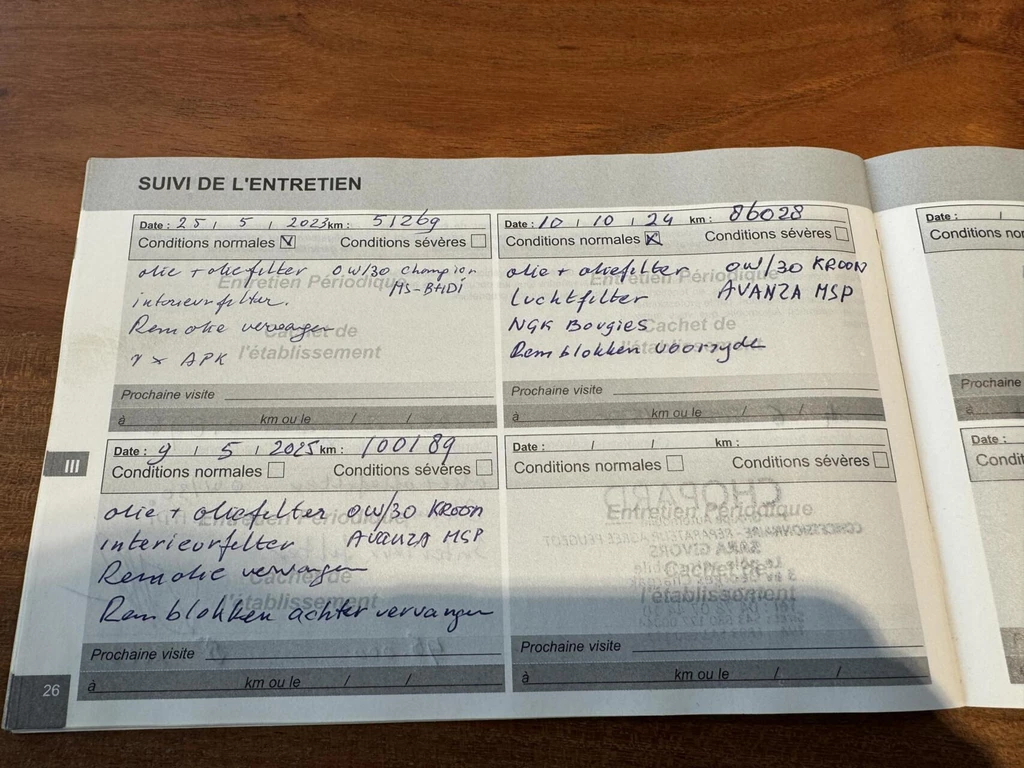 SUIVI DE L'ENTRETIEN
Date : 25 / 5 / 2023 km : 51269
Conditions normales Conditions sévères
Entretien Périodique
olie + oliefilter 0W/30 Champion
MS-BHDI
interieurfilter.
Remolie vervangen
Cachet de
l'établissement
x APK
Prochaine visite
à km ou le / /
Date : 10 / 10 / 24 km : 86028
Conditions normales Conditions sévères
Entretien Périodique
olie + oliefilter 0W/30 KROON
luchtfilter AVANZA MSP
NGK Bougies
Cachet de
l'établissement
Remblokken voorzyde
Prochaine visite
à km ou le / /
Date : 9 / 5 / 2025 km : 100189
Conditions normales Conditions sévères
Entretien Périodique
olie + oliefilter 0W/30 KROON
interieurfilter AVANZA MSP
Remolie vervangen
Cachet de
l'établissement
Remblokken achter vervangen
Prochaine visite
à km ou le / /
Date : / / km :
Conditions normales Conditions sévères
Entretien Périodique
Cachet de
l'établissement
Prochaine visite
à km ou le / /
III
26
Date : /
Prochaine
à
Date : /